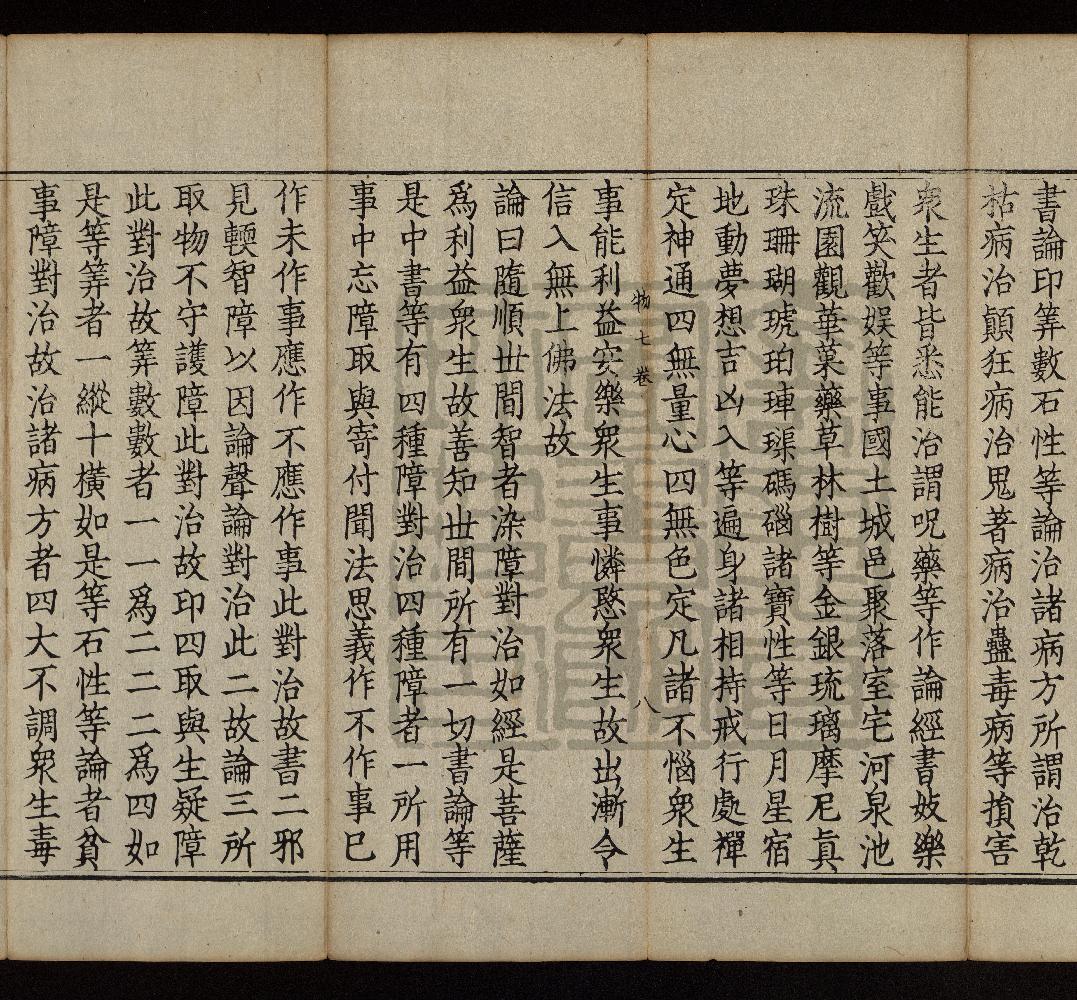 書論印筭數石性等論治諸病方所謂治乾
枯病治顛狂病治鬼著病治蠱毒病等損害
衆生者皆悉能治謂呪藥等作論經書妓樂
戲笑歡娛等事國土城邑聚落室宅河泉池
流園觀華菓藥草林樹等金銀琉璃摩尼真
珠珊瑚琥珀硨磲碼碯諸寶性等日月星宿
地動夢想吉凶入等遍身諸相持戒行處禪
定神通四無量心四無色定凡諸不惱衆生
物七卷 八
事能利益安樂衆生事憐愍衆生故出漸令
信入無上佛法故
論曰隨順世間智者染障對治如經是菩薩
爲利益衆生故善知世間所有一切書論等
是中書等有四種障對治四種障者一所用
事中忘障取與寄付聞法思義作不作事已
作未作事應作不應作事此對治故書二邪
見輭智障以因論聲論對治此二故論三所
取物不守護障此對治故印四取與生疑障
此對治故筭數數者一一爲二二二爲四如
是等筭者一縱十橫如是等石性等論者貧
事障對治故治諸病方者四大不調衆生毒